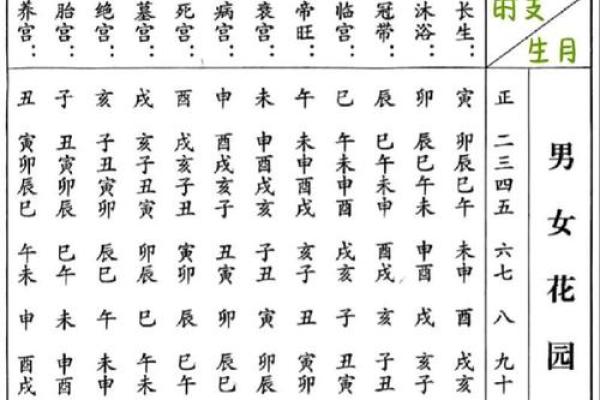 时支
生月
男女花园
正二三四五六七八九十
长生：寅卯辰巳午未申酉戌亥
沐浴：卯辰巳午未申酉戌亥子
冠带：辰巳午未申酉戌亥子丑
临宫：巳午未申酉戌亥子丑寅
帝旺：午未申酉戌亥子丑寅卯
衰宫：未申酉戌亥子丑寅卯辰
病宫：申酉戌亥子丑寅卯辰巳
死宫：酉戌亥子丑寅卯辰巳午
墓宫：戌亥子丑寅卯辰巳午未
绝宫：亥子丑寅卯辰巳午未申
胎宫：子丑寅卯辰巳午未申酉
养宫：丑寅卯辰巳午未申酉戌